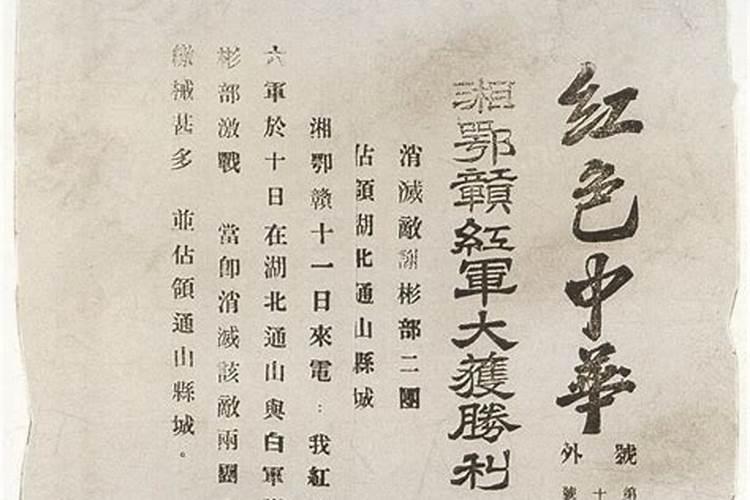 紅色中華
號外
第
十
號
湘鄂贛紅軍大獲勝利
消滅敵謝彬部二團
佔領湖北通山縣城
湘鄂贛十一日來電：我紅
六軍於十日在湖北通山與白軍
彬部激戰 當卽消滅該敵兩團
繳械甚多 並佔領通山縣城。